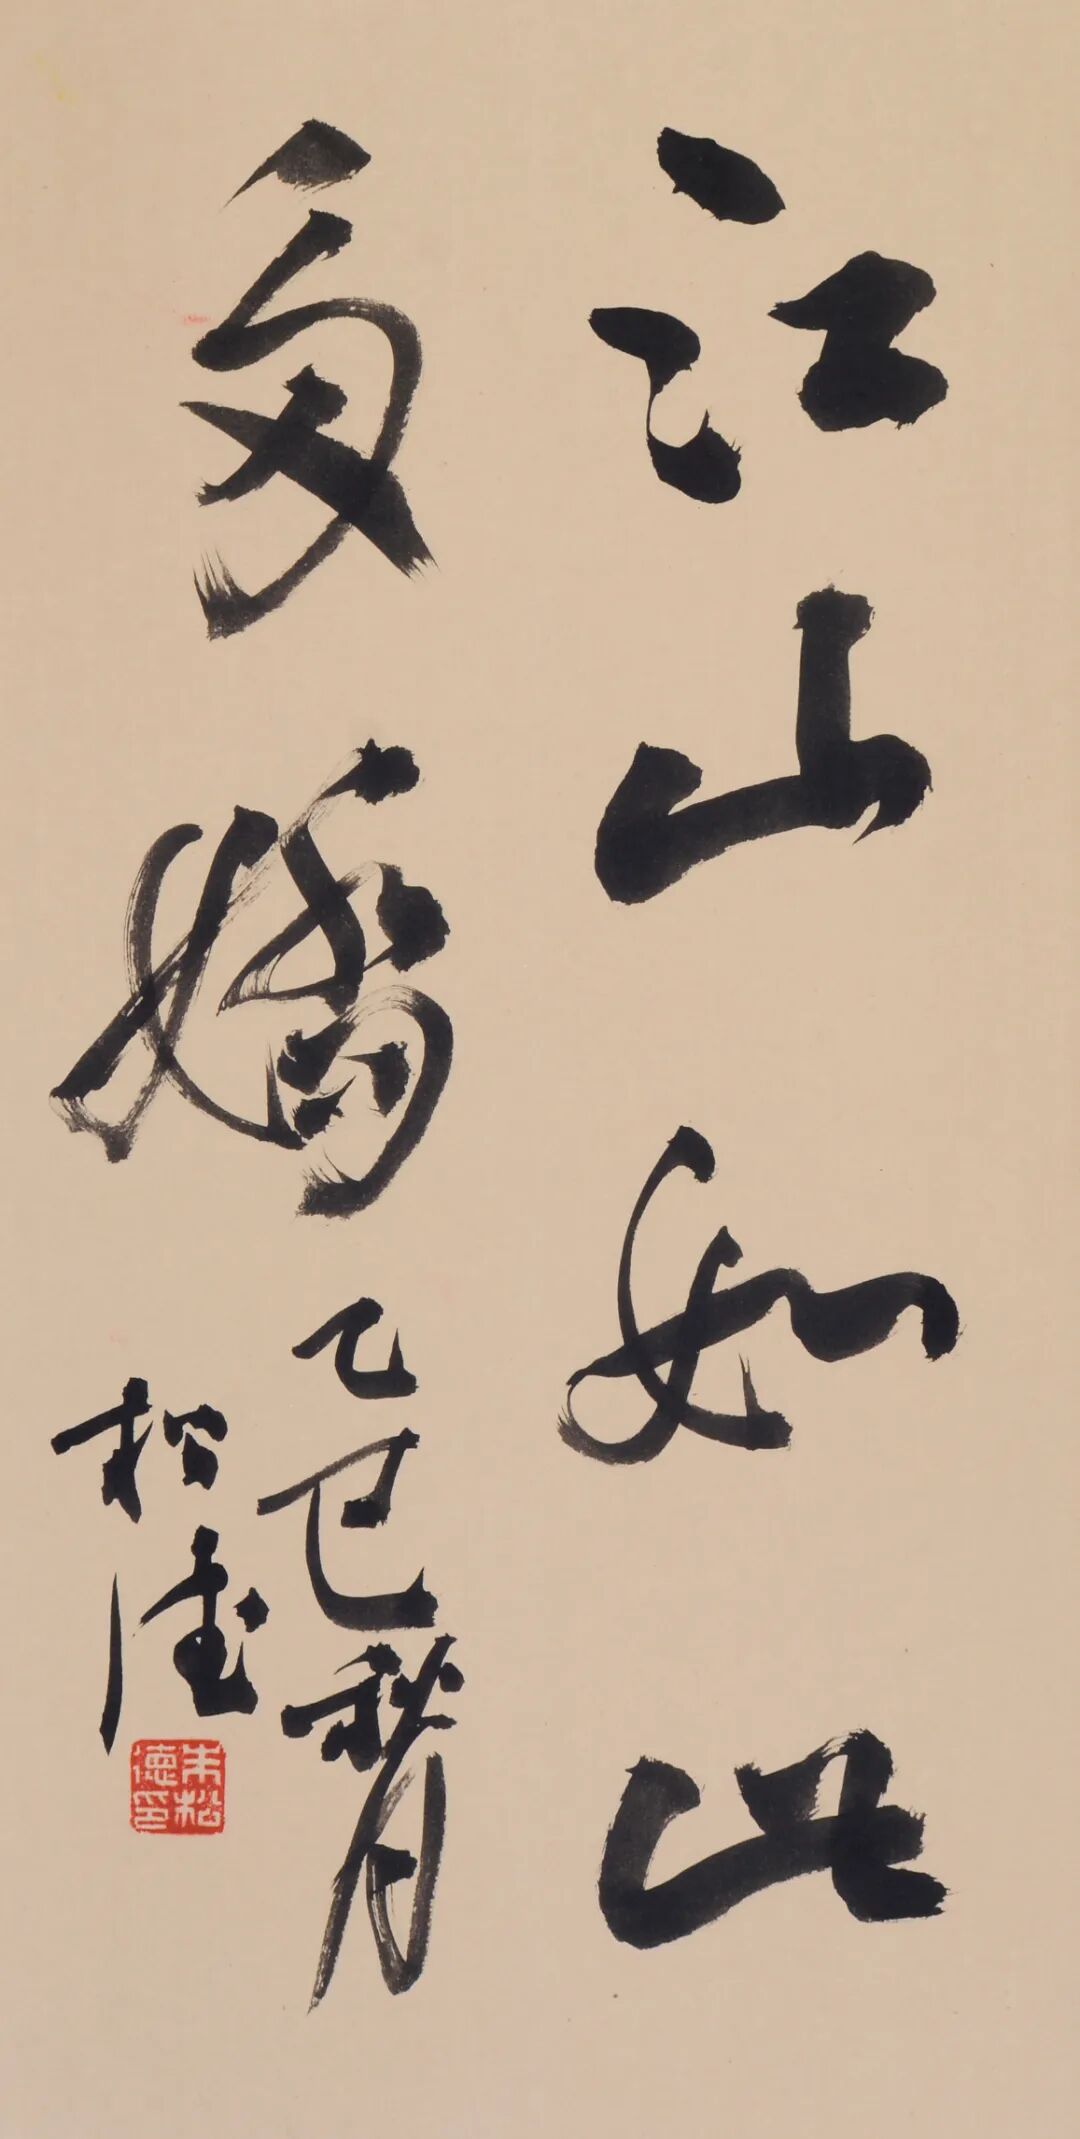 江山如此
多娇
乙巳秋月
松德
朱松德印